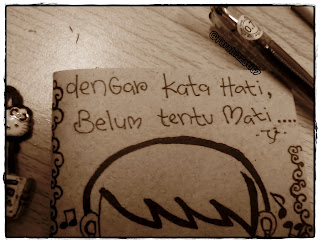 denGar kata Hati,
Belum tentu Mati....